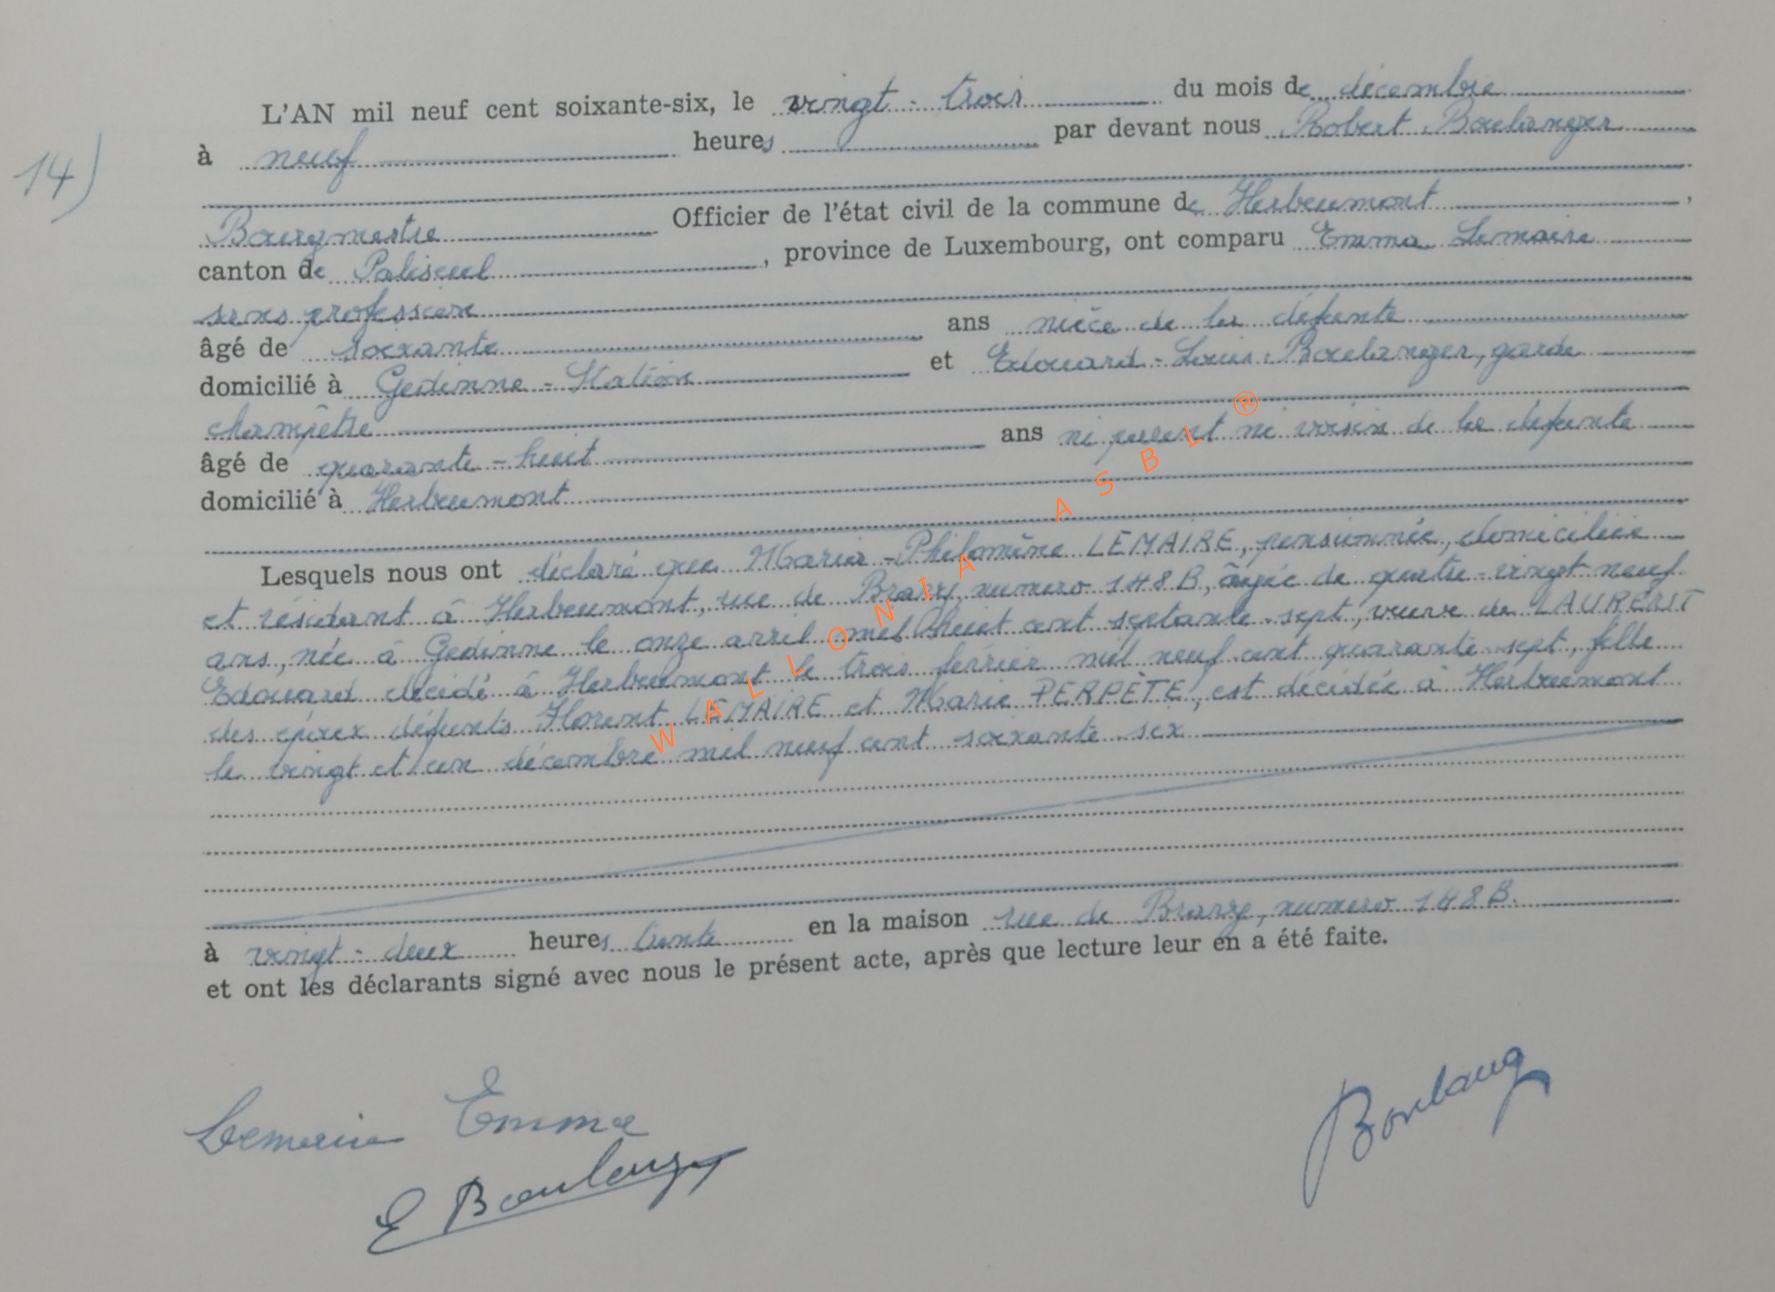 L'AN mil neuf cent soixante-six, le vingt-trois du mois de décembre
14)
à neuf heures par devant nous Robert Boulanger
Bourgmestre Officier de l'état civil de la commune de Herbeumont,
canton de Paliseul, province de Luxembourg, ont comparu Emma Lemaire
sans profession
âgé de soixante ans nièce de la défunte
domicilié à Gedinne-Station et Edouard-Louis Boulanger, garde
champêtre
âgé de quarante-huit ans ni parent ni voisin de la défunte
domicilié à Herbeumont
Lesquels nous ont déclaré que Maria-Philomène LEMAIRE, pensionnée, domiciliée
et résidant à Herbeumont, rue de Bravy, numéro 148B, âgée de quatre-vingt neuf
ans, née à Gedinne le onze avril mil huit cent septante-sept, veuve de LAURENT
Edouard décédé à Herbeumont le trois février mil neuf cent quarante sept, fille
des époux défunts Florent LEMAIRE et Marie PERPÈTE, est décédée à Herbeumont
le vingt et un décembre mil neuf cent soixante-six
à vingt-deux heures trente en la maison rue de Bravy, numéro 148B.
et ont les déclarants signé avec nous le présent acte, après que lecture leur en a été faite.
Lemaire Emma
E Boulanger
Boulang
WALLONIA ASBL ®